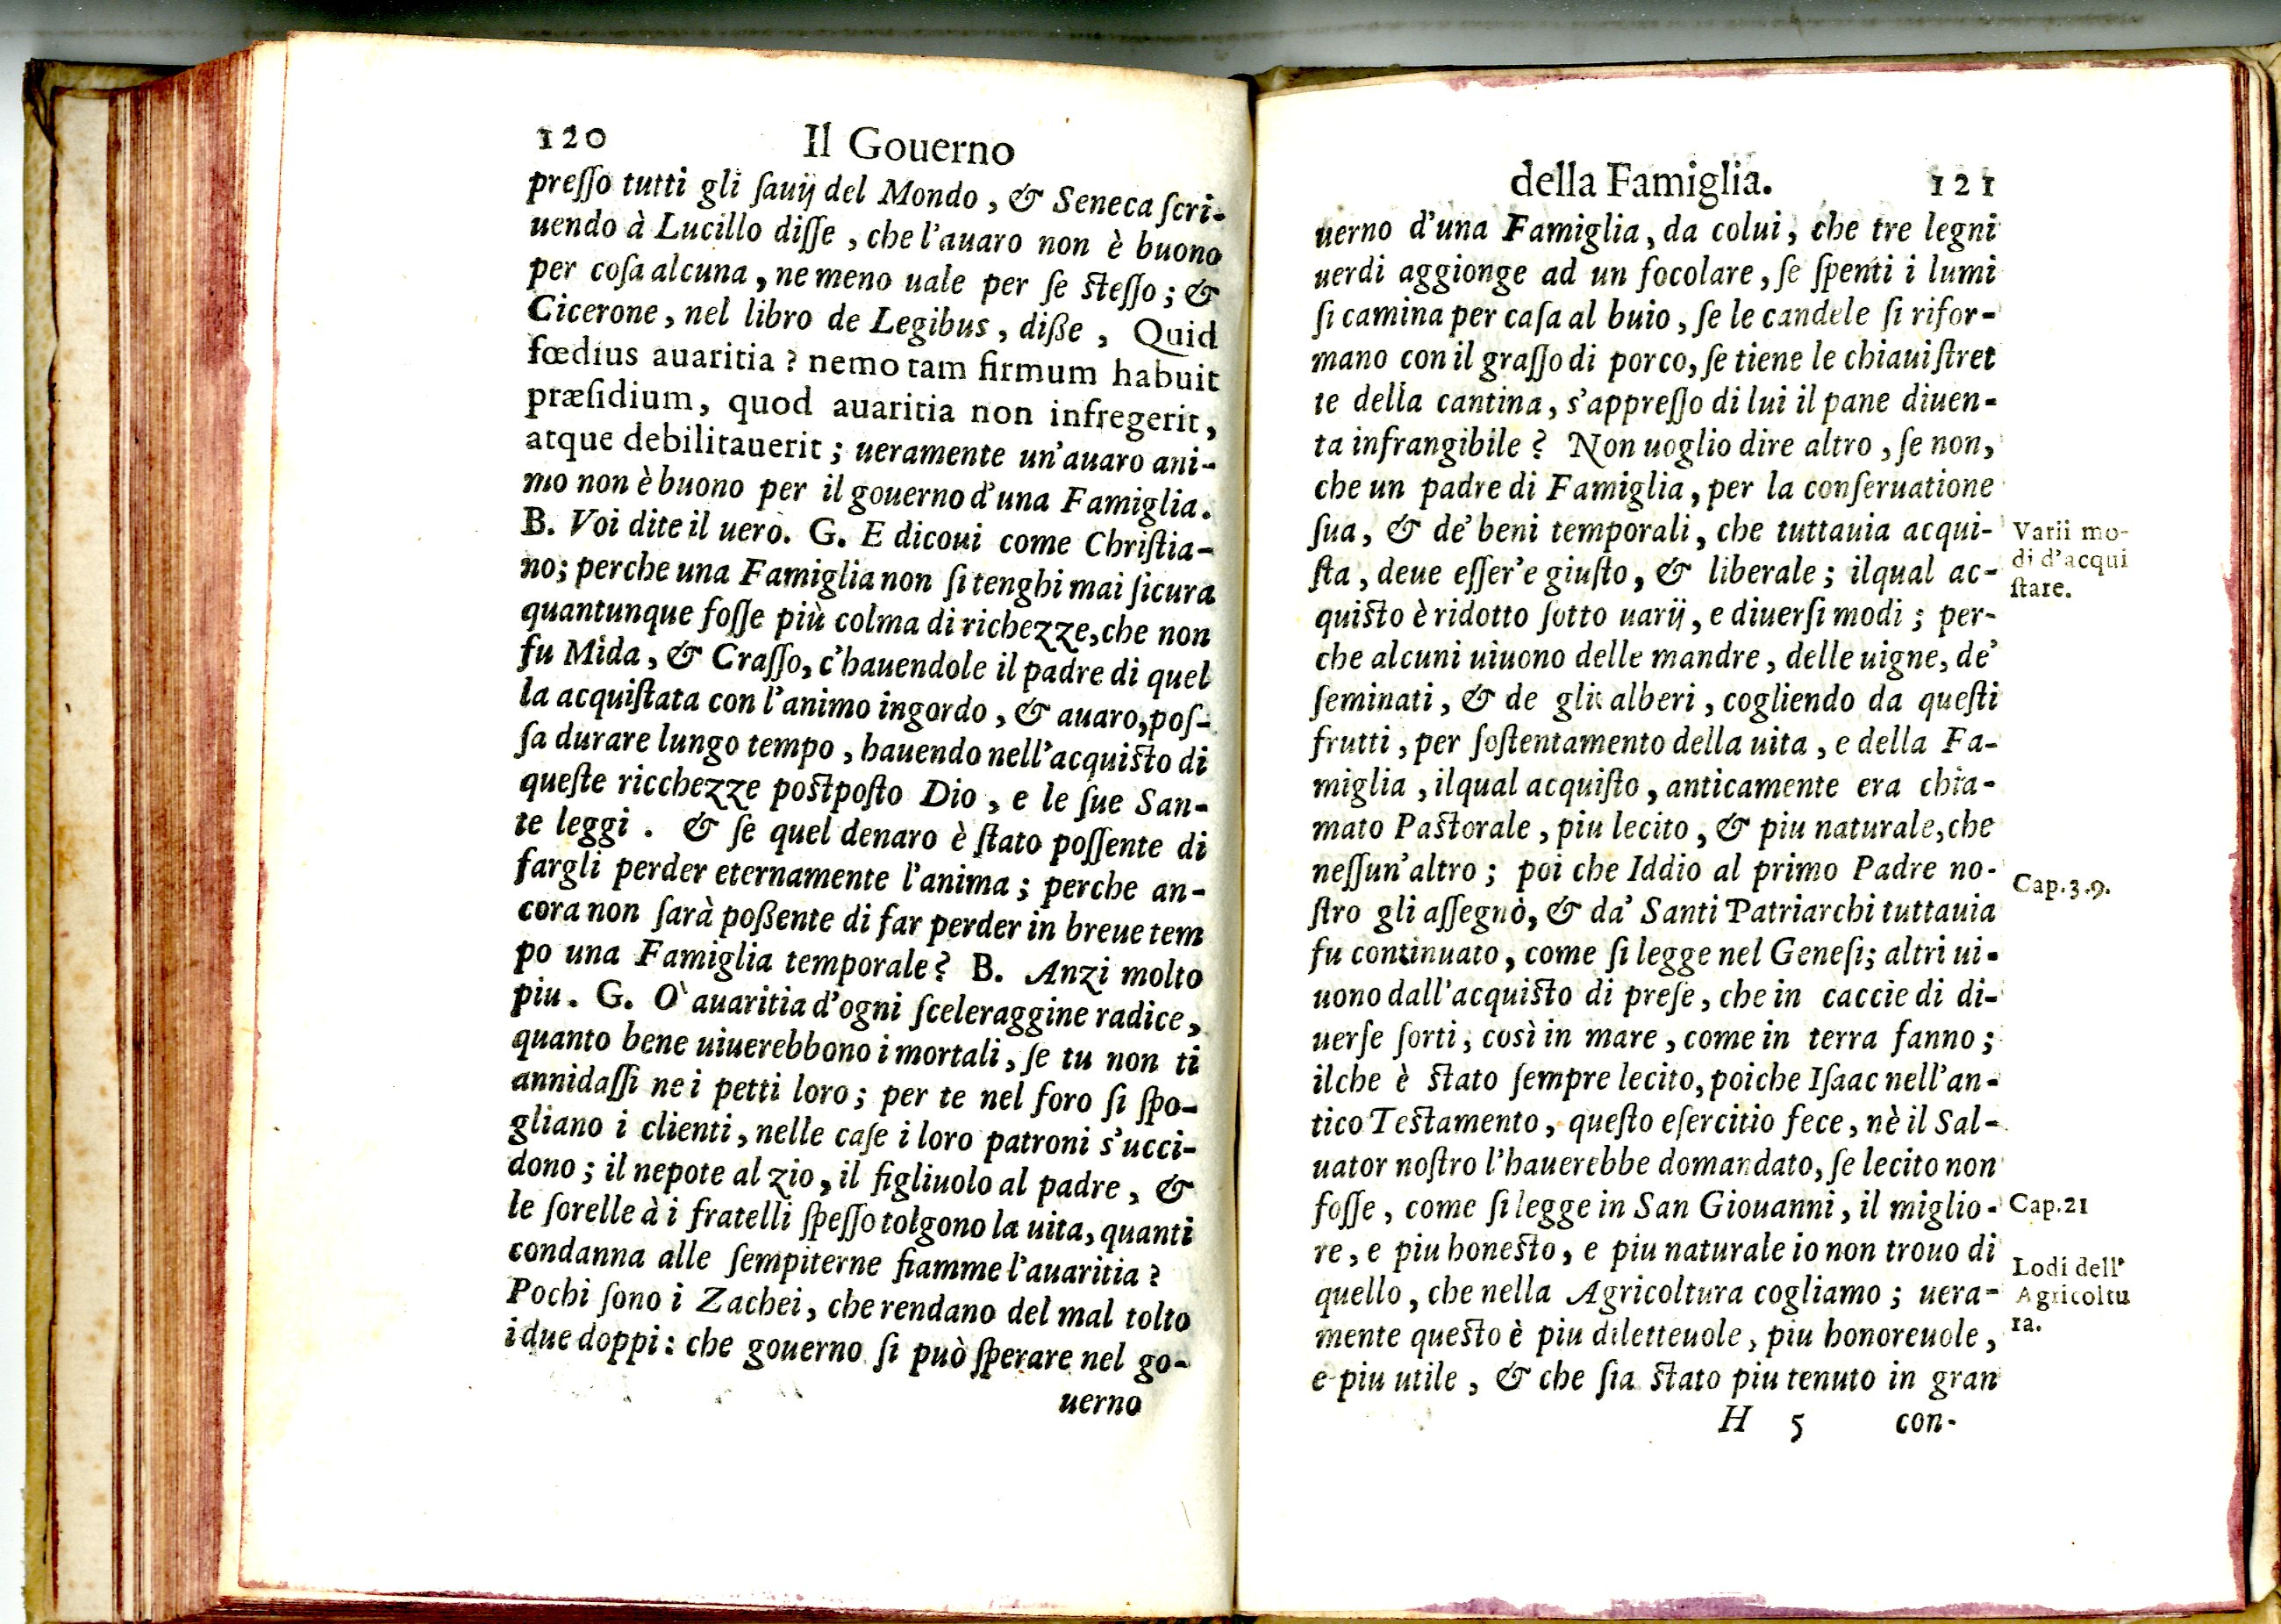 120 Il Gouerno
preſſo tutti gli ſauij del Mondo, & Seneca ſcri-
uendo à Lucillo diſſe, che l'auaro non è buono
per coſa alcuna, ne meno uale per ſe steſſo; &
Cicerone, nel libro de Legibus, diße, Quid
fœdius auaritia? nemo tam firmum habuit
præſidium, quod auaritia non infregerit,
atque debilitauerit; ueramente un'auaro ani-
mo non è buono per il gouerno d'una Famiglia.
B. Voi dite il uero. G. E dicoui come Chriſtia-
no; perche una Famiglia non ſi tenghi mai ſicura
quantunque foſſe più colma di richezze, che non
fu Mida, & Craſſo, c'hauendole il padre di quel
la acquiſtata con l'animo ingordo, & auaro, poſ-
ſa durare lungo tempo, hauendo nell'acquisto di
queſte ricchezze postpoſto Dio, e le ſue San-
te leggi. & ſe quel denaro è ſtato poſſente di
fargli perder eternamente l'anima; perche an-
cora non ſarà poßente di far perder in breue tem
po una Famiglia temporale? B. Anzi molto
piu. G. O' auaritia d'ogni ſceleraggine radice,
quanto bene uiuerebbono i mortali, ſe tu non ti
annidaſſi ne i petti loro; per te nel foro ſi ſpo-
gliano i clienti, nelle caſe i loro patroni s'ucci-
dono; il nepote al zio, il figliuolo al padre, &
le ſorelle à i fratelli ſpeſſo tolgono la uita, quanti
condanna alle ſempiterne fiamme l'auaritia?
Pochi ſono i Zachei, che rendano del mal tolto
i due doppi: che gouerno ſi può ſperare nel go-
uerno
della Famiglia. 121
uerno d'una Famiglia, da colui, che tre legni
uerdi aggionge ad un focolare, ſe ſpenti i lumi
ſi camina per caſa al buio, ſe le candele ſi rifor-
mano con il graſſo di porco, ſe tiene le chiaui ſtret
te della cantina, s'appreſſo di lui il pane diuen-
ta infrangibile? Non uoglio dire altro, ſe non,
che un padre di Famiglia, per la conſeruatione
ſua, & de' beni temporali, che tuttauia acqui-
ſta, deue eſſer'e giuſto, & liberale; ilqual ac-
quisto è ridotto ſotto uarij, e diuerſi modi; per-
che alcuni uiuono delle mandre, delle uigne, de'
ſeminati, & de gli alberi, cogliendo da queſti
frutti, per ſoſtentamento della uita, e della Fa-
miglia, ilqual acquiſto, anticamente era chia-
mato Pastorale, piu lecito, & piu naturale, che
neſſun'altro; poi che Iddio al primo Padre no-
ſtro gli aſſegnò, & da' Santi Patriarchi tuttauia
fu continuato, come ſi legge nel Geneſi; altri ui-
uono dall'acquisto di preſe, che in caccie di di-
uerſe ſorti, così in mare, come in terra fanno;
ilche è stato ſempre lecito, poiche Iſaac nell'an-
tico Testamento, queſto eſercitio fece, nè il Sal-
uator noſtro l'hauerebbe domandato, ſe lecito non
foſſe, come ſi legge in San Giouanni, il miglio-
re, e piu honesto, e piu naturale io non trouo di
quello, che nella Agricoltura cogliamo; uera-
mente questo è piu diletteuole, piu honoreuole,
e piu utile, & che ſia stato piu tenuto in gran
H 5 con-
Varii mo-
di d'acqui
ſtare.
Cap.3.9.
Cap.21
Lodi dell'
Agricoltu
ra.